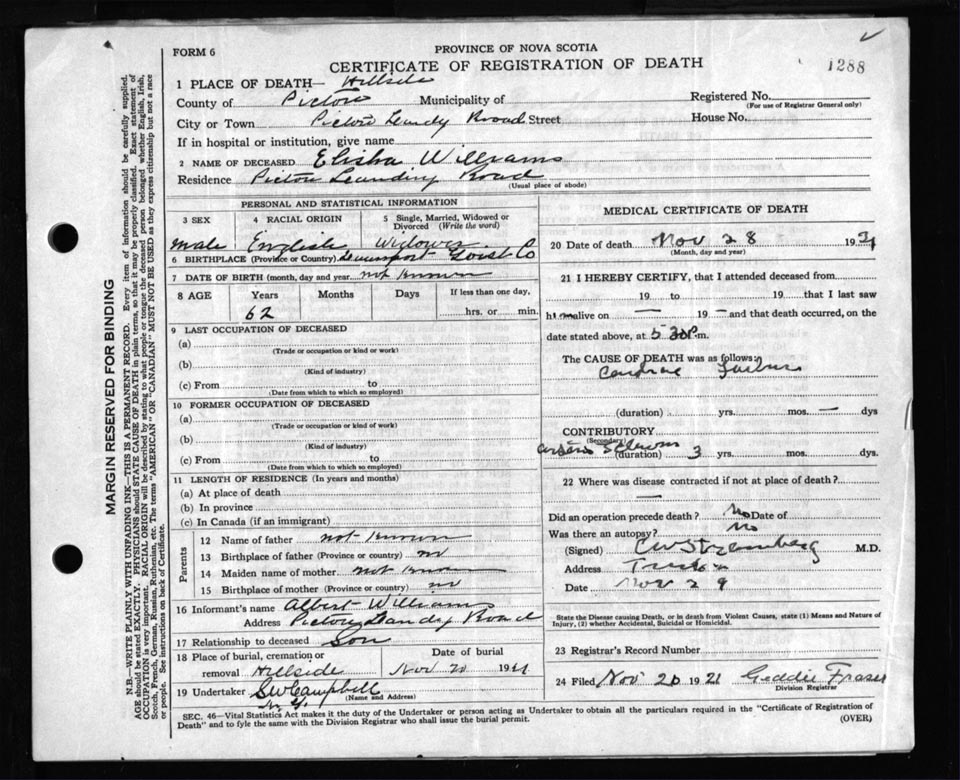 FORM 6
PROVINCE OF NOVA SCOTIA
CERTIFICATE OF REGISTRATION OF DEATH
1288
1 PLACE OF DEATH— Hillside
County of Pictou Municipality of
Registered No.
(For use of Registrar General only)
City or Town Pictou Landg Road Street
House No.
If in hospital or institution, give name
2 NAME OF DECEASED Elisha Williams
Residence Pictou Landing Road
(Usual place of abode)
PERSONAL AND STATISTICAL INFORMATION
3 SEX
male
4 RACIAL ORIGIN
English
5 Single, Married, Widowed or Divorced (Write the word)
Widower
6 BIRTHPLACE (Province or Country)
7 DATE OF BIRTH (month, day and year not known
8 AGE
Years
62
Months
Days
If less than one day,
hrs. or min.
9 LAST OCCUPATION OF DECEASED
(a)
(Trade or occupation or kind or work)
(b)
(Kind of industry)
(c) From to
(Date from which to which so employed)
10 FORMER OCCUPATION OF DECEASED
(a)
(Trade or occupation or kind of work)
(b)
(Kind of industry)
(c) From to
(Date from which to which so employed)
11 LENGTH OF RESIDENCE (In years and months)
(a) At place of death
(b) In province
(c) In Canada (if an immigrant)
Parents
12 Name of father not known
13 Birthplace of father (Province or country)
14 Maiden name of mother not known
15 Birthplace of mother (Province or country)
16 Informant's name Albert Williams
Address Pictou Landg Road
17 Relationship to deceased Son
18 Place of burial, cremation or removal Hillside
Date of burial
Nov 19
19 Undertaker SW Campbell
(Name and Address)
N. G.
MEDICAL CERTIFICATE OF DEATH
20 Date of death Nov 28 193
(Month, day and year)
21 I HEREBY CERTIFY, that I attended deceased from
19 to 19 that I last saw
him alive on — 19 — and that death occurred, on
date stated above, at 5 30 P.m.
The CAUSE OF DEATH was as follows:
Cardiac Failure
(duration) yrs. mos. — dys
CONTRIBUTORY
(Secondary)
Arterio Sclerosis
(duration) 3 yrs. mos. dys.
22 Where was disease contracted if not at place of death?
—
Did an operation precede death? No Date of
Was there an autopsy? No
(Signed) M.D.
Address Trenton
Date Nov 29
State the Disease causing Death, or in death from Violent Causes, state (1) Means and Nature of Injury, (2) whether Accidental, Suicidal or Homicidal.
23 Registrar's Record Number
24 Filed Nov 19 Geddie Fraser
Division Registrar
SEC. 46—Vital Statistics Act makes it the duty of the Undertaker or person acting as Undertaker to obtain all the particulars required in the "Certificate of Registration of
Death" and to fyle the same with the Division Registrar who shall issue the burial permit.
(OVER)
MARGIN RESERVED FOR BINDING
N.B.—WRITE PLAINLY WITH UNFADING INK—THIS IS A PERMANENT RECORD. Every item of information should be carefully supplied.
AGE should be stated EXACTLY. PHYSICIANS should STATE CAUSE OF DEATH in plain terms, so that it may be properly classified. Exact statement of
OCCUPATION is very important. RACIAL ORIGIN will be described by stating to what people or tongue the deceased person belonged whether English, Irish,
Scotch, French, German, Russian, Ruthenian, etc. The terms "AMERICAN" or "CANADIAN" MUST NOT BE USED as they express citizenship but not a race
or people. See instructions on back of Certificate.